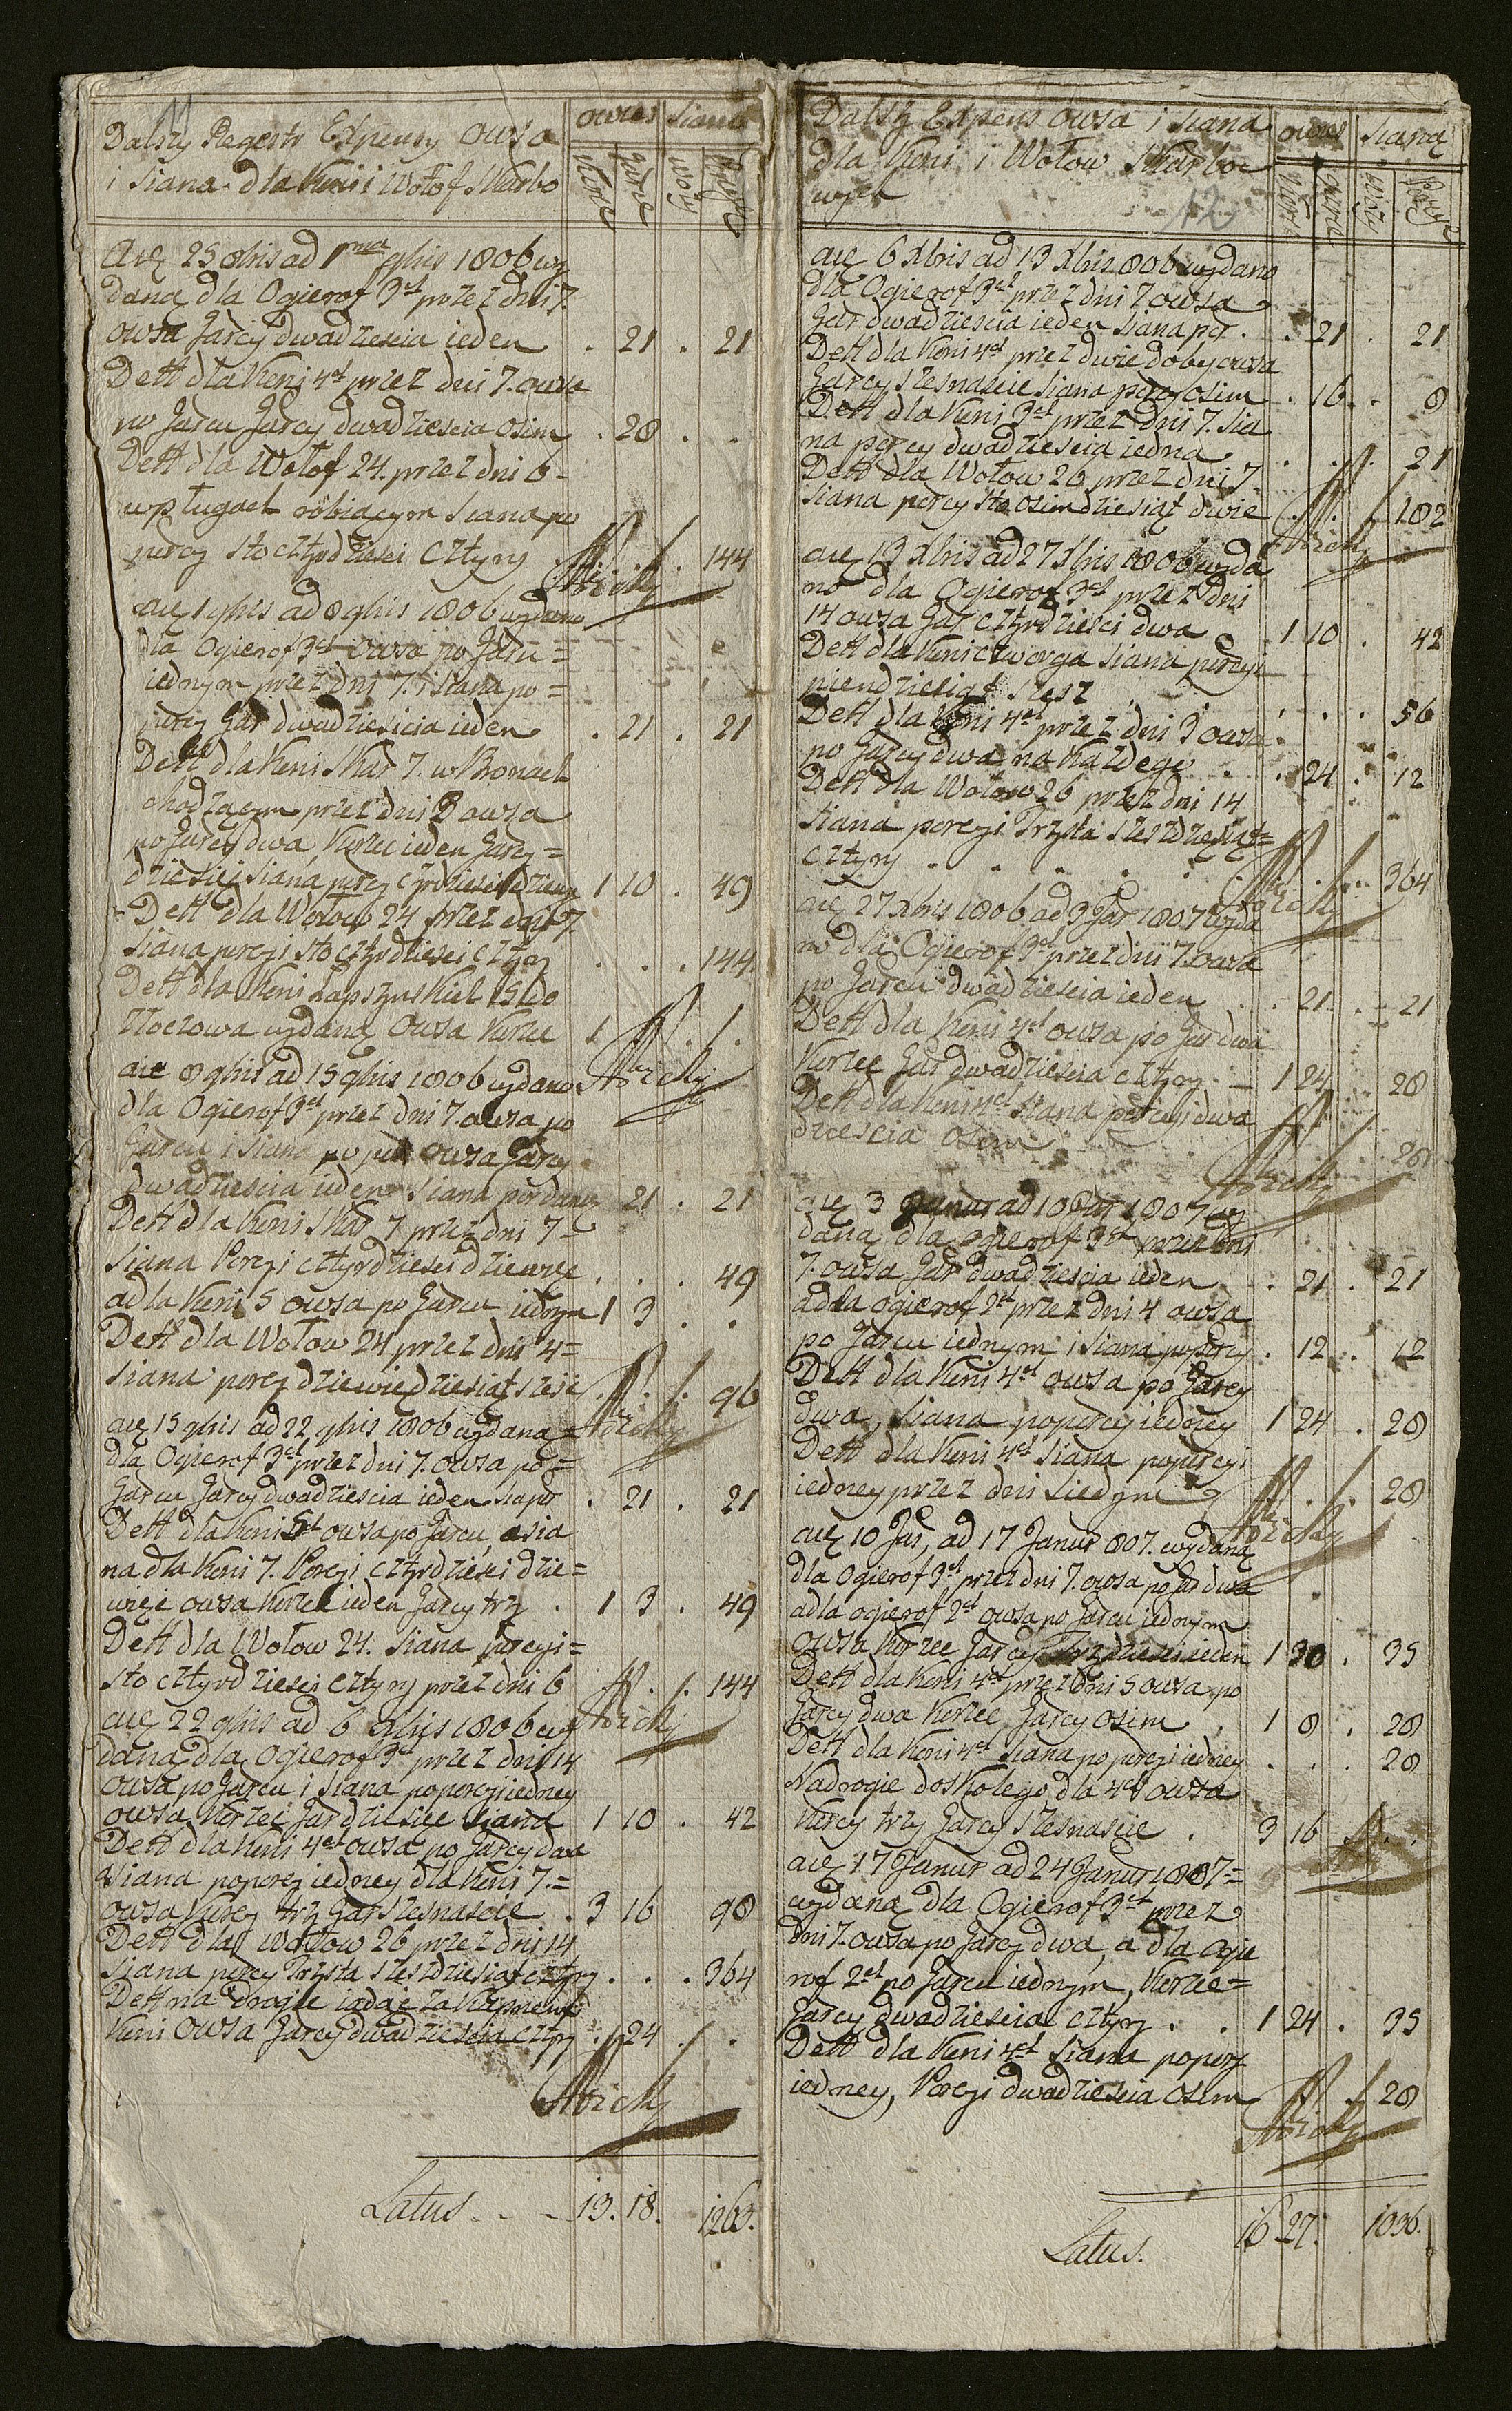 11
Dalszy Regestr Expensy Owsa
i Siana dla Koni i Wołof Skarbo
owies Siano
Korce Garce wozy Porcye
a 25 8bris ad 1ma 9bris 1806 wy
daną dla Ogierof 3ch przez dni 7
owsa Garcy dwadziescia ieden . 21 . 21
Dett dla Koni 4ch przez dni 7. owsa
po Garcu Garcy dwadziescia osim . 28 . .
Dett dla Wołof 24. przez dni 6 =
w pługach robiącym Siana po
porcy sto cztyrdziesci cztyry . . . 144
a 1 9bris ad 8 9bris 1806 wydano
dla Ogierof 3ch owsa po Garcu =
iednym przez dni 7. i Siana po =
porcy Gar dwadziesicia ieden . 21 . 21
Dett dla Koni Skar 7. w Bronach
chodzącym przez dni 3 owsa
po Garcy dwa, Korzec ieden Garcy =
dziesięć siana porcy cztyrdziesci dziewię 1 10 . 49
Dett dla Wołow 24 przez dni 7
Siana porcyi sto cztyrdziesci cztyry . . . 144.
Dett dla Koni Łapszynskich do
Złoczowa wydaną Owsa Korzec 1 . . .
a 8 9bris ad 15 9bris 1806 wydano
dla Ogierof 3ch przez dni 7. owsa po
Garcu i Siana po porc owsa Garcy
dwadziescia ieden Siana por 21 . 21
Dett dla Koni Skar 7 przez dni 7 =
Siana Porcyi cztyrdziesci dziewięć . . . 49
a dla Koni 5 owsa po Garcu iednym 1 3 . .
Dett dla Wołow 24 przez dni 4 =
Siana porcy dziewiędziesiąt szesć . . . 96
a 15 9bris ad 22 9bris 1806 wydaną =
dla Ogierof 3ch przez dni 7. owsa po =
Garcu Garcy dwadziescia ieden sia por . 21 . 21
Dett dla Koni 5ch owsa po Garcu, a sia
na dla Koni 7. Porcyi cztyrdziesci dzie =
więć owsa Korzec ieden Garcy trzy . 1 3 . 49
Dett dla Wołow 24. Siana porcyi =
sto cztyrdziesci cztyry przez dni 6 . . 144
a 22 9bris ad 6 1806 wy
dana dla Ogierof 3ch przez dni 14
Owsa po Garcu i Siana po porcyi iedney
owsa Korzec Gar dziesiec Siana 1 10 . 42
Dett dla Koni 4ch owsa po Garcy dwa
Siana po porcy iedney dla Koni 7. =
owsa Korcy trzy Gar szesnascie . 3 16 98
Dett dla Wołow 26 przez dni 14
Siana porcy Trzysta szesdziesiąt cztyry . . . 364
Dett na drogie iadąc za
Koni Owsa Garcy dwadziescia cztyry . 24 . .
Latus . . - 13. 18. 1263.
12
Dalszy Expens owsa i Siana
dla Koni i Wołow Skarbo
wych
owies Siana
Korce Garce wozy Porcye
a 6 Xbris ad 13 Xbris 806 wydano
dla Ogierof 3ch przez dni 7 owsa
Gar dwadziescia ieden Siana por . . 21 . 21
Dett dla Koni 4ch przez dwie doby owsa
Garcy szesnascie Siana porcy osim . 16 . . 8
Dett dla Koni 3ch przez dni 7. Sia
na porcy dwadziescia iedna . . . 21
Dett dla Wołow 26 przez dni 7
Siana porcy sto osimdziesiąt dwie . . . 182
a 13 Xbris ad 27 Xbris 1806 wyda
no dla Ogierof 3ch przez dni
14 owsa Gar cztyrdziesci dwa 1 10 . 42
Dett dla Koni czworga Siana porcyi
piendziesiąt szesz . . . 56
Dett dla Koni 4ch przez dni 3 owsa
po Garcy dwa na Kazdego . . . 24 . 12
Dett dla Wołow 26 przez dni 14
Siana porcyi Trzysta szeszdziesiąt =
cztyry . . . . 364
a 27 Xbris 1806 ad 3 Jar 1807 wyda
no dla Ogierof 3ch przez dni 7. owsa
po Garcu dwadziescia ieden . . 21 . 21
Dett dla Koni 4ch owsa po Gar dwa
Korzec Gar dwadziescia cztyry 1 24 . 28
Dett dla Koni 4ch Siana porcyi dwa
dziescia osim . . . 28
a 3 Januar ad 10 1807 wy
daną dla ogierof 3ch przez dni
7. owsa Gar dwadziescia ieden . 21 . 21
a dla ogierof 2ch przez dni 4 owsa
po Garcu iednym i Siana po porcy . 12 . 12
Dett dla Koni 4ch owsa po Garcy
dwa, Siana po porcy iedney 1 24 . 28
Dett dla Koni 4ch Siana po porcyi
iedney przez dni siedym . . 28
a 10 Jar, ad 17 Januar 807. wydaną
dla Ogierof 3ch przez dni 7. owsa po Gar dwa
a dla ogierof 2ch owsa po Garcu iednym
Owsa Korzec Garcy Trzydziesci ieden 1 30 . 35
Dett dla Koni 4ch przez dni 5 owsa po
Garcy dwa Korzec Garcy osim . 1 8 . 28
Dett dla Koni 4ch Siana po porcyi iedney . . . 28
Na drogie do Skolego dla 4ch owsa
Korcy trzy Garcy szesnascie . 3 16 . .
a 17 Januar ad 24 Januar 1807 =
wydaną dla Ogierof 3ch przez
dni 7. owsa po Garcy dwa, a dla ogie
rof 2ch po Garcu iednym, Korzec =
Garcy dwadziescia cztyry . . 1 24 . 35
Dett dla Koni 4ch Siana po porcy
iedney, Porcyi dwadziescia osim . . 28
Latus. 16 27. 1036.